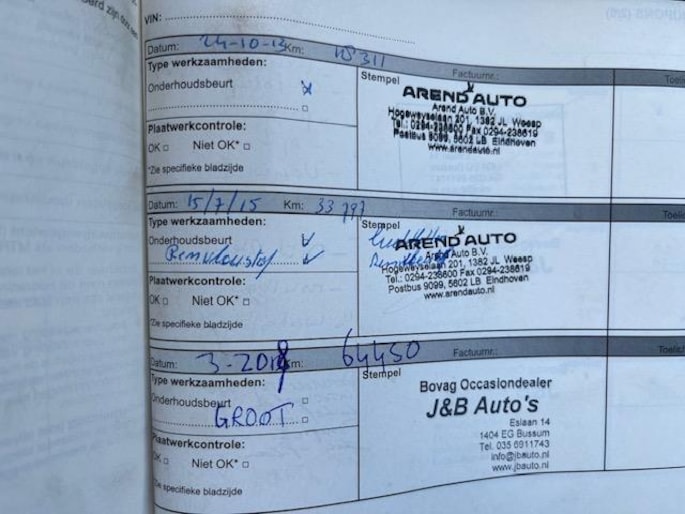 VIN:
Datum: 24-10-13 Km: 18311
Type werkzaamheden:
Stempel
Factuurnr.:
Onderhoudsbeurt
AREND AUTO
Arend Auto B.V.
Hogeweyselaan 201, 1382 JL Weesp
Tel.: 0294-238600 Fax 0294-238619
Postbus 9099, 5602 LB Eindhoven
www.arendauto.nl
Plaatwerkcontrole:
OK Niet OK*
*Zie specifieke bladzijde
Datum: 15/7/15 Km: 33797
Type werkzaamheden:
Stempel
Factuurnr.:
Onderhoudsbeurt
Remvloeistof
AREND AUTO
Arend Auto B.V.
Hogeweyselaan 201, 1382 JL Weesp
Tel.: 0294-238600 Fax 0294-238619
Postbus 9099, 5602 LB Eindhoven
www.arendauto.nl
Plaatwerkcontrole:
OK Niet OK*
*Zie specifieke bladzijde
Datum: 3-2018 Km: 64450
Type werkzaamheden:
Stempel
Factuurnr.:
Onderhoudsbeurt
GROOT
Bovag Occasiondealer
J&B Auto's
Eslaan 14
1404 EG Bussum
Tel. 035 6911743
info@jbauto.nl
www.jbauto.nl
Plaatwerkcontrole:
OK Niet OK*
*Zie specifieke bladzijde